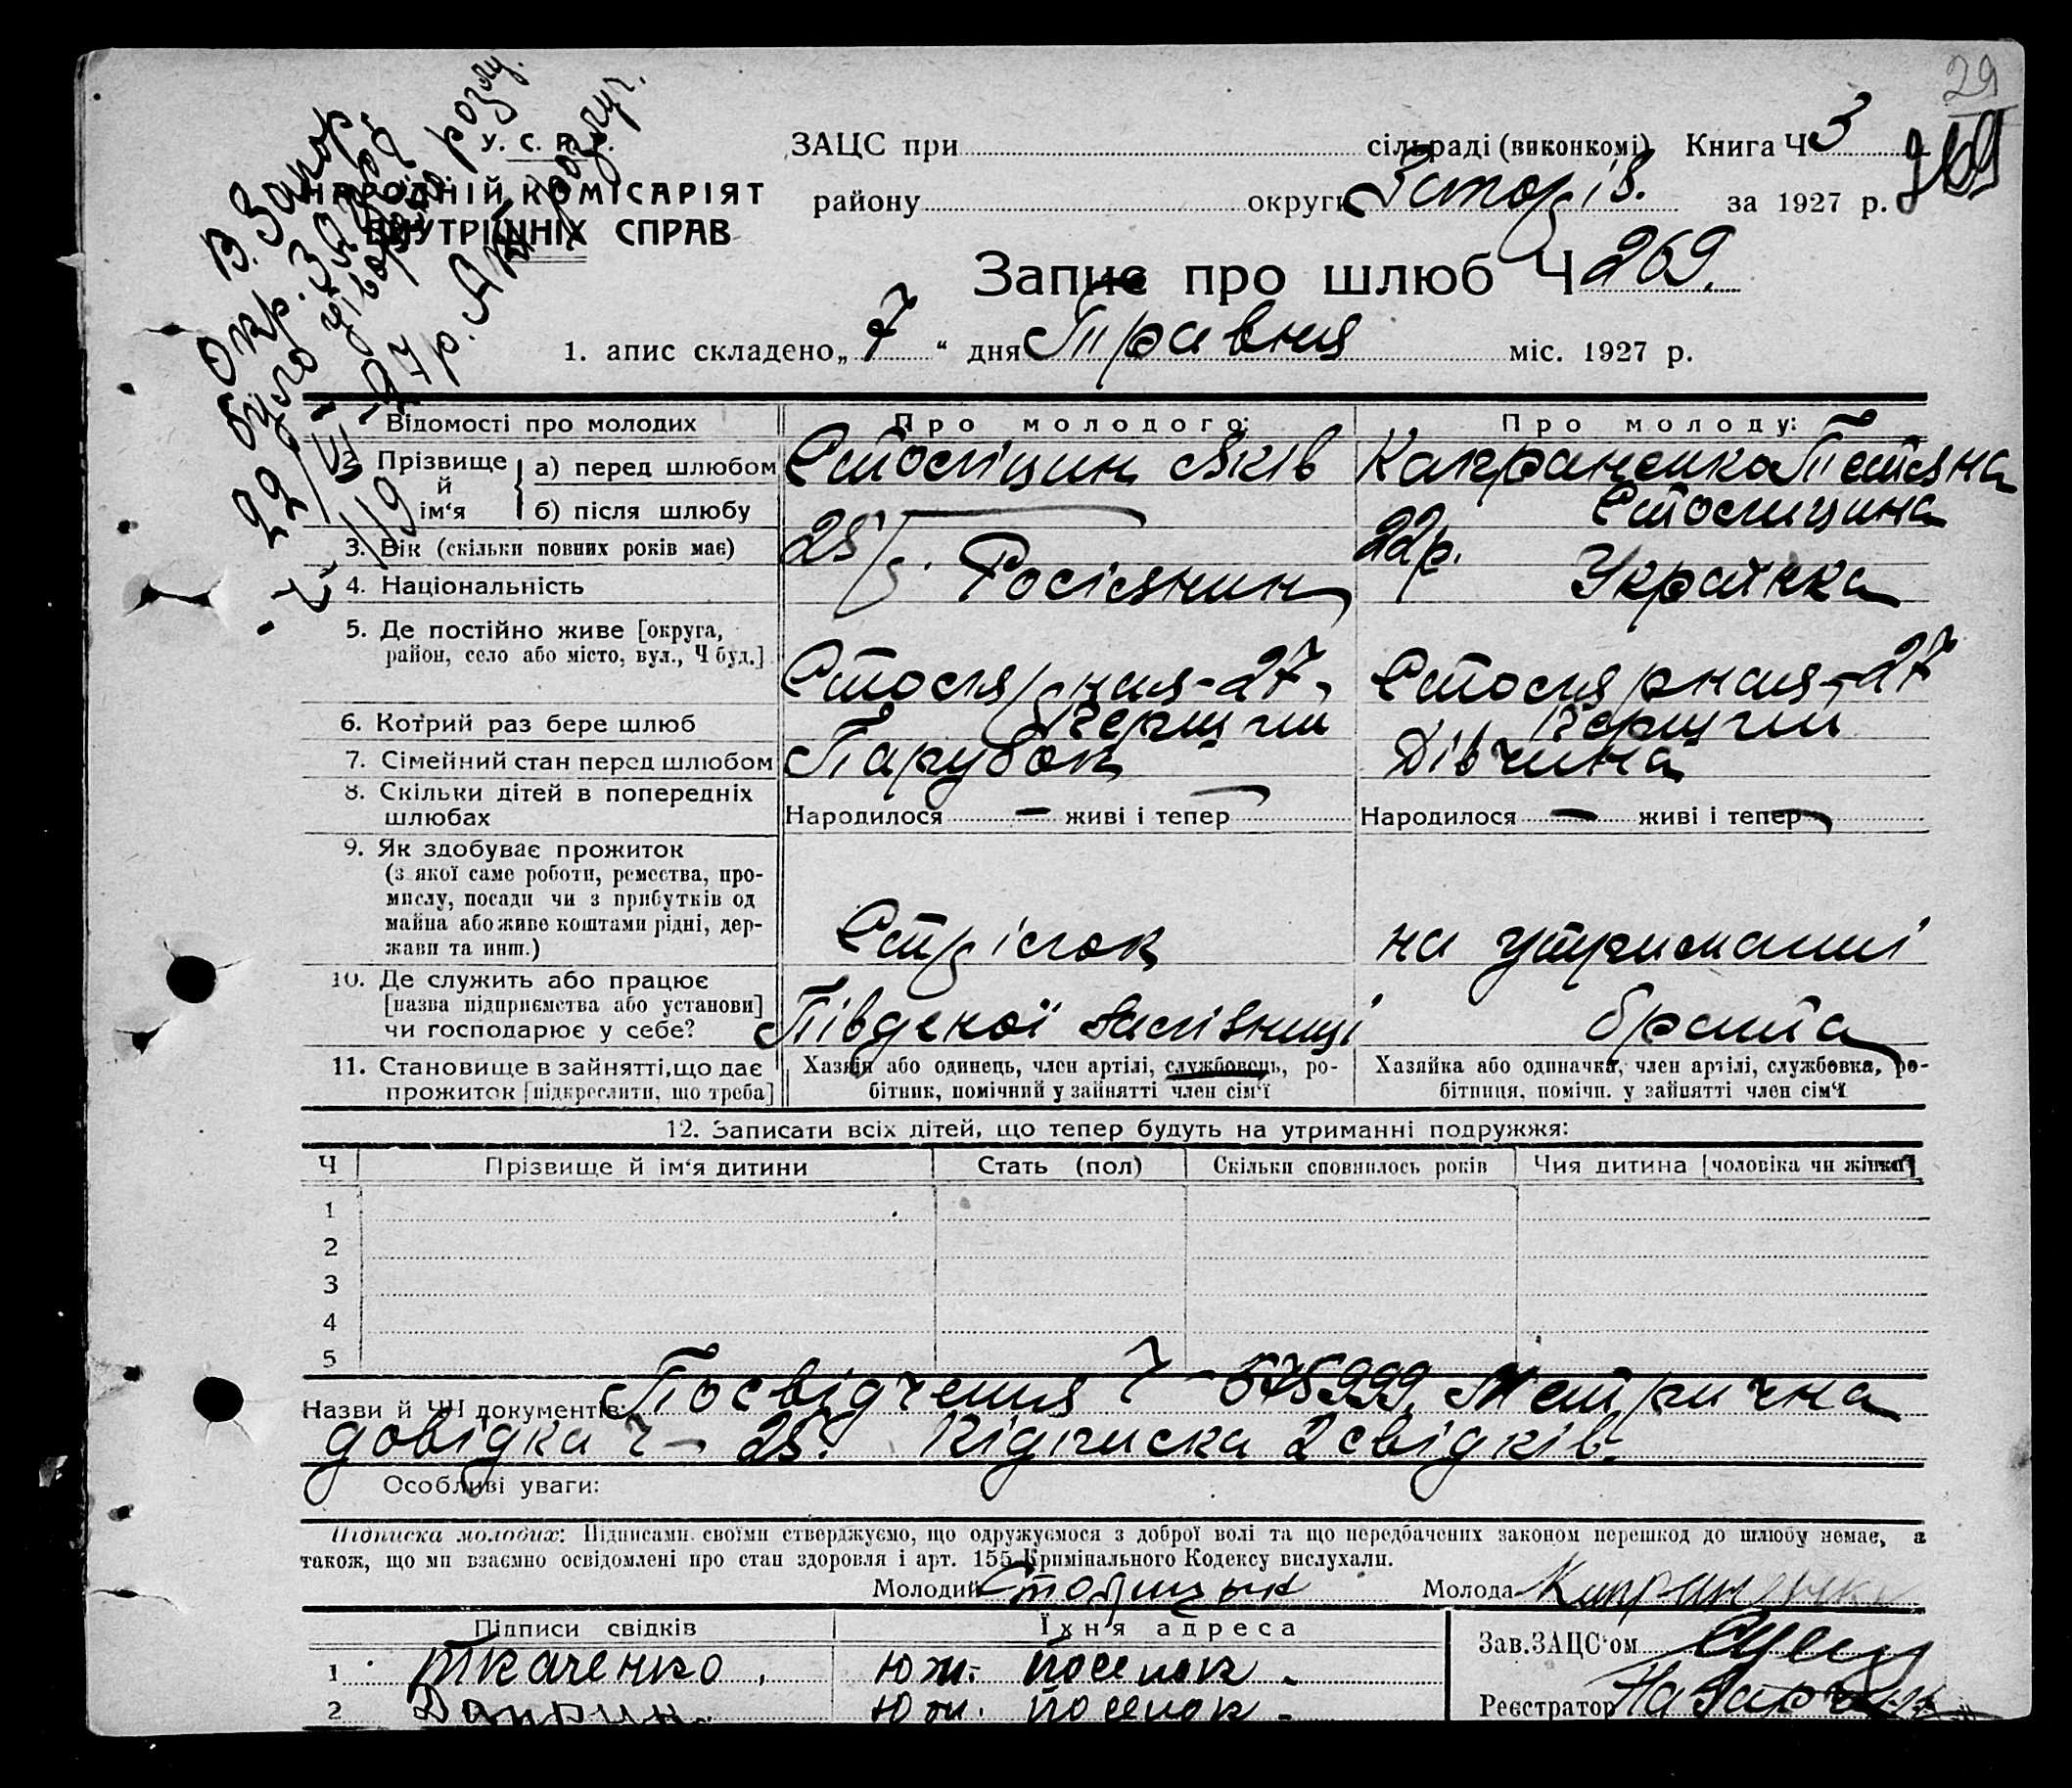 29
У. С. Р. Р.
НАРОДНІЙ КОМІСАРІЯТ
ВНУТРІШНІХ СПРАВ
В. Запор.
Окр. ЗАЦСі
було утворено розлу.
22/VІІ-27 р. Акт розлуч.
119
ЗАЦС при сільраді (виконкомі) Книга Ч 3
району округи Запоріз. за 1927 р. 269
Запис про шлюб Ч 269.
1. апис складено „ 7 “ дня Травня міс. 1927 р.
Відомості про молодих Про молодого: Про молоду:
2. Прізвище й ім‘я а) перед шлюбом Століцин Яків Капраненко Тетяна
б) після шлюбу — Столицина
3. Вік (скільки повних років має) 25 р. 22 р.
4. Національність Росіянин Українка
5. Де постійно живе [округа,
район, село або місто, вул., Ч буд.] Столярная-27, Столярная-27
6. Котрий раз бере шлюб Перший Перший
7. Сімейний стан перед шлюбом Парубок Дівчина
8. Скільки дітей в попередніх
шлюбах Народилося — живі і тепер — Народилося — живі і тепер —
9. Як здобуває прожиток
(з якої саме роботи, ремества, про-
мислу, посади чи з прибутків од
майна або живе коштами рідні, дер-
жави та инш.) Стрілок на утриманні
10. Де служить або працює
[назва підприємства або установи]
чи господарює у себе? Південої залізниці брата
11. Становище в зайнятті, що дає
прожиток [підкреслити, що треба]
Хазяїн або одинець, член артілі, службовець, ро-
бітник, помічний у зайнятті член сім‘ї
Хазяйка або одиначка, член артілі, службовка, ро-
бітниця, помічн. у зайнятті член сім‘ї
12. Записати всіх дітей, що тепер будуть на утриманні подружжя:
Ч Прізвище й ім‘я дитини Стать (пол) Скільки сповнилось років Чия дитина [чоловіка чи жінки]
1
2
3
4
5
Назви й ЧЧ документів: Посвідчення Ч - 575999, Метрична
довідка ч - 25. Підписка 2 свідків.
Особливі уваги:
Підписка молодих: Підписами своїми стверджуємо, що одружуємося з доброї волі та що передбачених законом перешкод до шлюбу немає, а
також, що ми взаємно освідомлені про стан здоровля і арт. 155 Кримінального Кодексу вислухали.
Молодий Столицын Молода Капраненко
Підписи свідків Їхня адреса
Зав. ЗАЦС‘ом
1 Ткаченко. Юж. поселок.
2 Юж. поселок.
Реєстратор